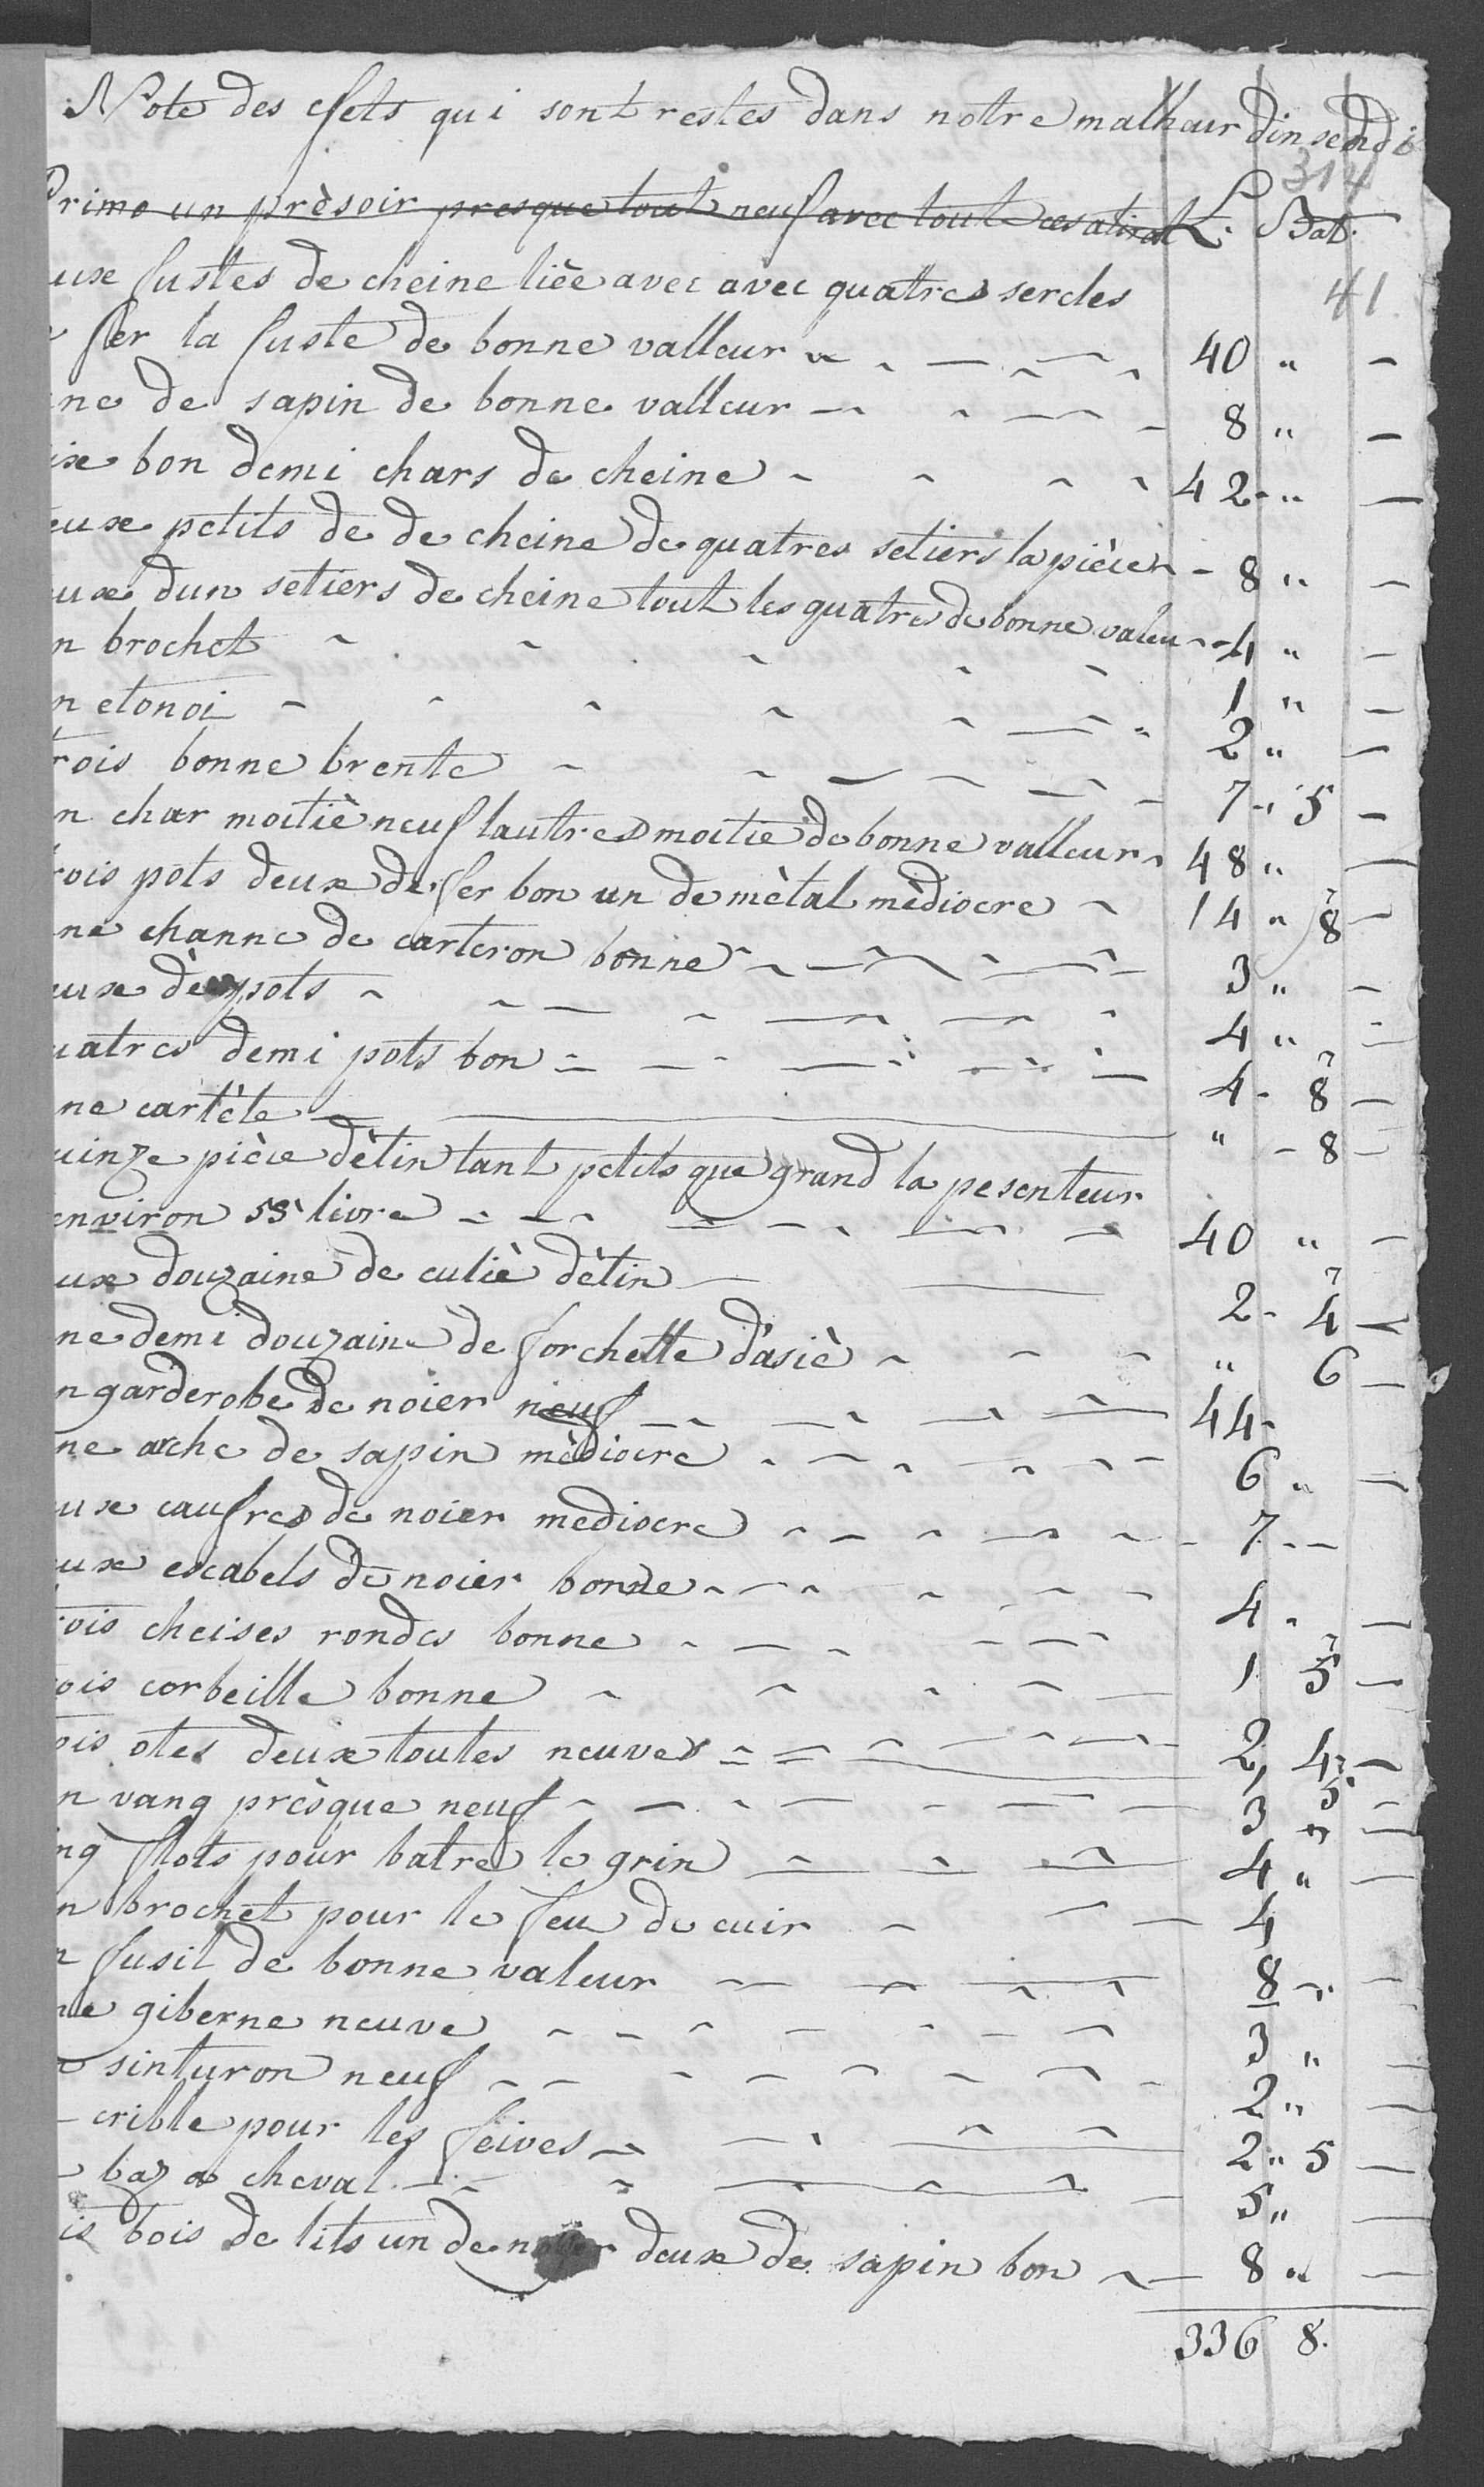 Note des efets qui sont restes dans notre malhaur dinsendi
314
Primo un prèsoir presque tout neuf avec tout ces atirat L. Bat.
41
uxe fustes de cheine liée avec avec quatres sercles
fer la fuste de bonne valleur 40 " -
ne de sapin de bonne valleur 8 " -
ixe bon demi chars de cheine 42 - " -
euxe petits de de cheine de quatres setiers la pièce 8 " -
uxe dun setiers de cheine tout les quatres de bonne valeu 4 " -
n brochet 1 " -
n etonoi 2 " -
rois bonne brente 7 - 5 -
n char moitiè neuf lautres moitie de bonne valleur 48 " -
rois pots deuxe de fer bon un de mètal mèdiocre 14 " 8 -
ne channe de carteron bonne 3 " -
uxe dè pots 4 " -
uatres demi pots bon 4 - 8 -
ne cartète " - 8 -
uinze pièce dètin tant petits que grand la pesenteur
environ 55 livre 40 " -
uxe douzaine de culiè dètin 2 - 4 -
ne demi douzaine de forchette d'asiè " 6 -
n garderobe de noier neuf 44 -
ne arche de sapin mèdiocre 6 " -
uxe caufres de noier mediocre 7 - -
uxe escabels de noier bonne 4 - -
rois cheises rondes bonne 1 5 -
ois corbeille bonne 2 4 -
ois otes deuxe toutes neuves 5 -
n vang prèsque neuf 3 " -
inq flots pour batre le grin 4 " -
n brochet pour le feu de cuir 4
n fusil de bonne valeur 8 - -
ne giberne neuve 3 " -
sinturon neuf 2 " -
crible pour les feives 2 " 5 -
baz a cheval 5 " -
is bois de lits un de noier deuxe de sapin bon 8 " -
336 8.